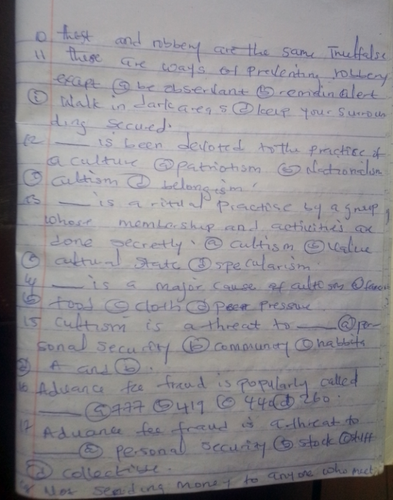 10 theft and robbery are the same True/false
11 these are ways of preventing robbery
except (a) be observant (b) remain alert
(c) Walk in dark areas (d) keep your surroun
ding secured.
12 ___ is been devoted to the practise of
a culture (a) patriotism (b) Nationalism
(c) cultism (d) belongism.
13 ___ is a ritual practise by a group
whose membership and activities are
done secretly. (a) cultism (b) value
(c) cultural state (d) specularism.
14 ___ is a major cause of cultism (a)
(b) food (c) cloth (d) peer pressure.
15 Cultism is a threat to ___ (a) per
sonal security (b) community (c) habbits
(d) A and (b).
16 Advance fee fraud is popularly called
___ (a) 777 (b) 419 (c) 440 (d) 260.
17 Advance fee fraud is a threat to
___ (a) personal security (b) stock (c)
(d) collective.
18 Not sending money to anyone who meet